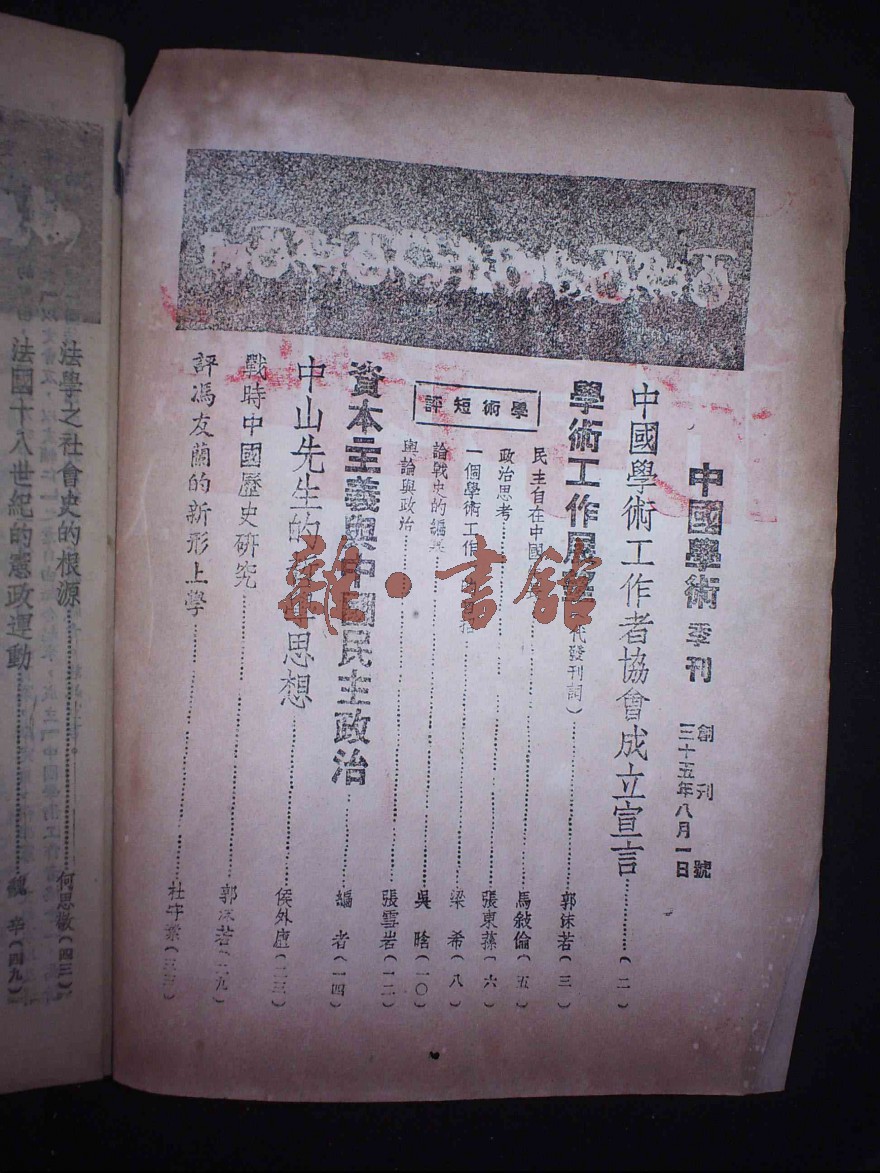 中國學術 季刊
創刊號
三十五年八月一日
中國學術工作者協會成立宣言…………(二)
學術工作展望(代發刊詞)…………郭沫若(三)
學術短評
民主自在中國…………馬敍倫(五)
政治思考…………張東蓀(六)
一個學術工作…………梁希(八)
論戰史的編纂…………吳晗(一〇)
輿論與政治…………張雪岩(一二)
資本主義與中國民主政治…………編者(一四)
中山先生的哲學思想…………侯外廬(二三)
戰時中國歷史研究…………郭沫若(二九)
評馮友蘭的新形上學…………杜守素
法學之社會史的根源…………何思敬(四三)
法國十八世紀的憲政運動…………(四九)
雜·書館